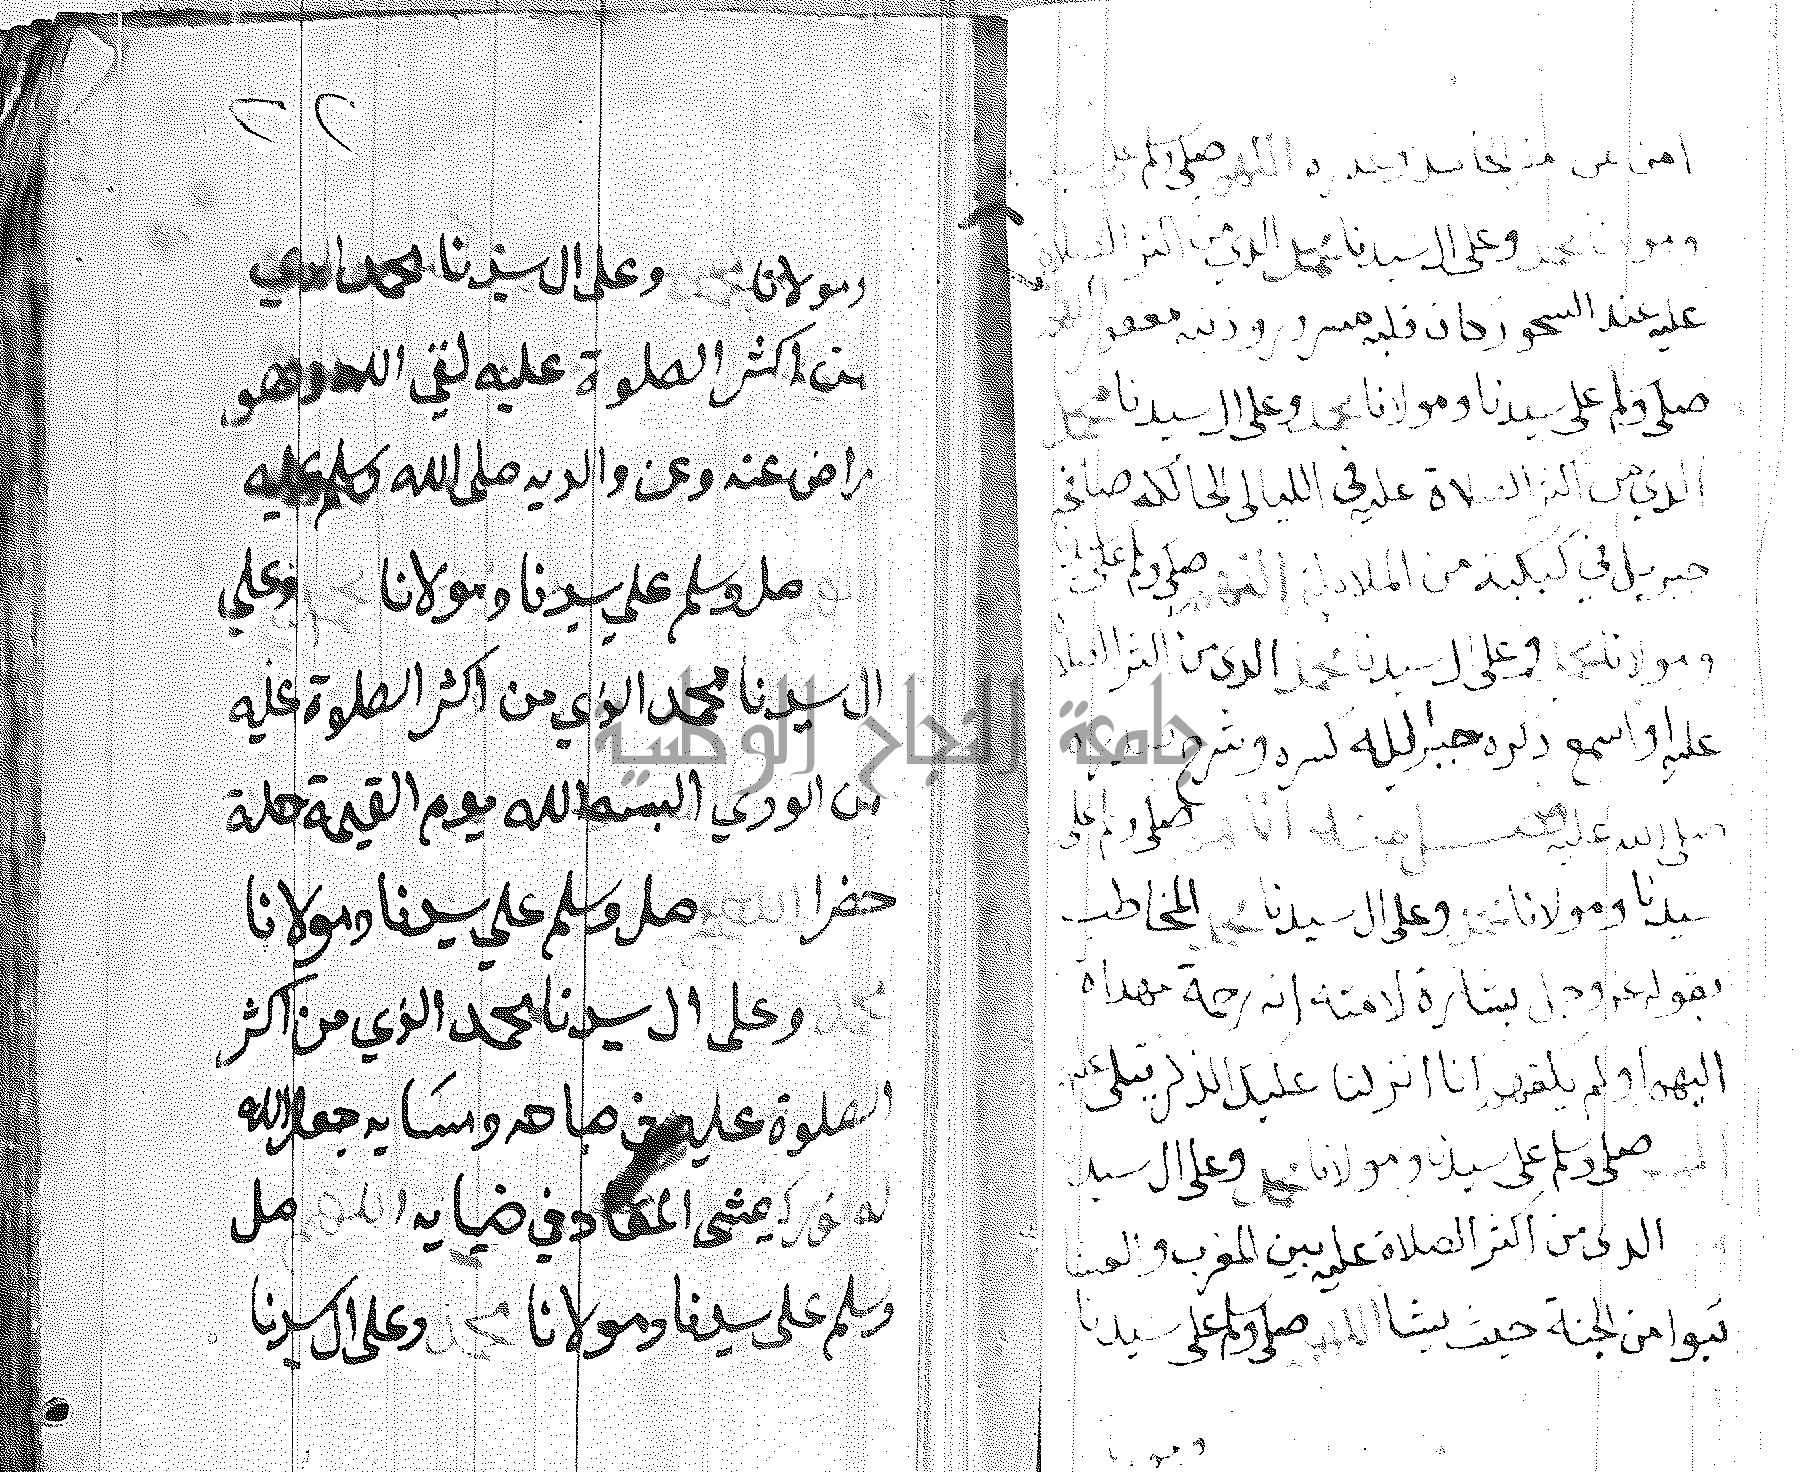 امن من
ومولانا محمد وعلى ال سيدنا محمد الذي من اكثر الصلاة
عليه عند السحور كان قلبه مسرور وذنبه مغفور اللهم
صلى وسلم على سيدنا ومولانا محمد وعلى ال سيدنا محمد
الذي من اكثر الصلاة عليه في الليالي الحالكه صافحه
جبريل في كبكبة من الملايكة اللهم صلى وسلم على سيدنا
ومولانا محمد وعلى ال سيدنا محمد الذي من اكثر الصلاة
عليه او اسمع ذكره جبر الله كسره وشرح
صلى الله عليه وسلم اللهم صلى وسلم على
سيدنا ومولانا محمد وعلى ال سيدنا محمد المخاطب
بقوله عز وجل بشارة لامته انه رحمة مهداة
اليهم اولم يكفهم انا انزلنا عليك الذكر يتلى عليهم
اللهم صلى وسلم على سيدنا ومولانا محمد وعلى ال سيدنا
الذي من اكثر الصلاة عليه بين المغرب والعشا
تبوا من الجنة حيث يشا اللهم صلى وسلم على سيدنا
ومولانا
٢٢
ومولانا محمد وعلى ال سيدنا محمد الذي
من اكثر الصلوة عليه لقي الله وهو
راض عنه وعن والديه صلى الله وسلم عليه
اللهم صل وسلم علي سيدنا ومولانا محمد وعلي
ال سيدنا محمد الذي من اكثر الصلوة عليه
من الوري البسه الله يوم القيمة حلة
خضرا اللهم صل وسلم علي سيدنا ومولانا
محمد وعلى ال سيدنا محمد الذي من اكثر
الصلوة عليه في صباحه ومسايه جعل الله
له نورا يمشى في ضيايه اللهم صل
وسلم على سيدنا ومولانا محمد وعلى ال سيدنا
جامعة النجاح الوطنية